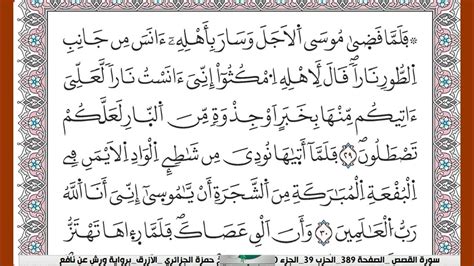 ۞ فَلَمَّا قَضَىٰ مُوسَى اَلَاجَلَ وَسَارَ بِأَهْلِهِۦٓ ءَانَسَ مِن جَانِبِ
اِ۬لطُّورِ نَاراًۖ قَالَ لِأَهْلِهِ اِ۟مْكُثُوٓاْ إِنِّيَ ءَانَسْتُ نَاراً لَّعَلِّيَ
ءَاتِيكُم مِّنْهَا بِخَبَرٍ اَوْ جِذْوَةٍ مِّنَ اَ۬لنّ۪ارِ لَعَلَّكُمْ
تَصْطَلُونَۖ ٢٩ فَلَمَّآ أَتَيٰهَا نُودِيَ مِن شَٰطِےِٕ اِ۬لْوَادِ اِ۬لَايْمَنِ فِے
اِ۬لْبُقْعَةِ اِ۬لْمُبَٰرَكَةِ مِنَ اَ۬لشَّجَرَةِ أَنْ يَّٰمُوس۪ىٰٓ إِنِّيَ أَنَا اَ۬للَّهُ
رَبُّ اُ۬لْعَٰلَمِينَ ٣٠ وَأَنَ اَلْقِ عَصَاكَۖ فَلَمَّا ر۪ء۪اهَا تَهْتَزُّ
سورة القصص_الصفحة 389_الحزب 39_الجزء حمزة الجزائري_الأزرق_برواية ورش عن نافع